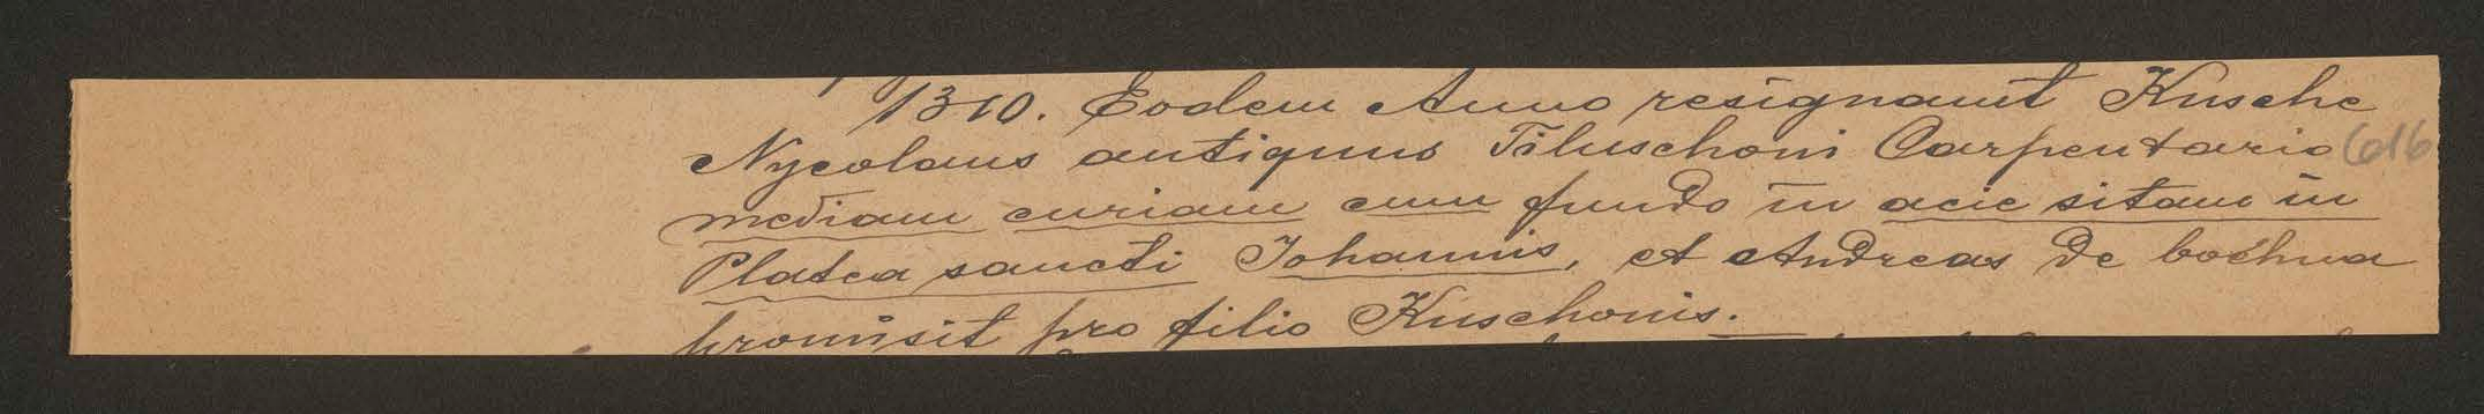 1310. Eodem Anno resignavit Kusche
Nycolaus antiquus Tiluschoni Carpentario 616
mediam curiam cum fundo in acie sitam in
Platea sancti Johannis, et Andreas de bochna
promisit pro filio Kuschonis.